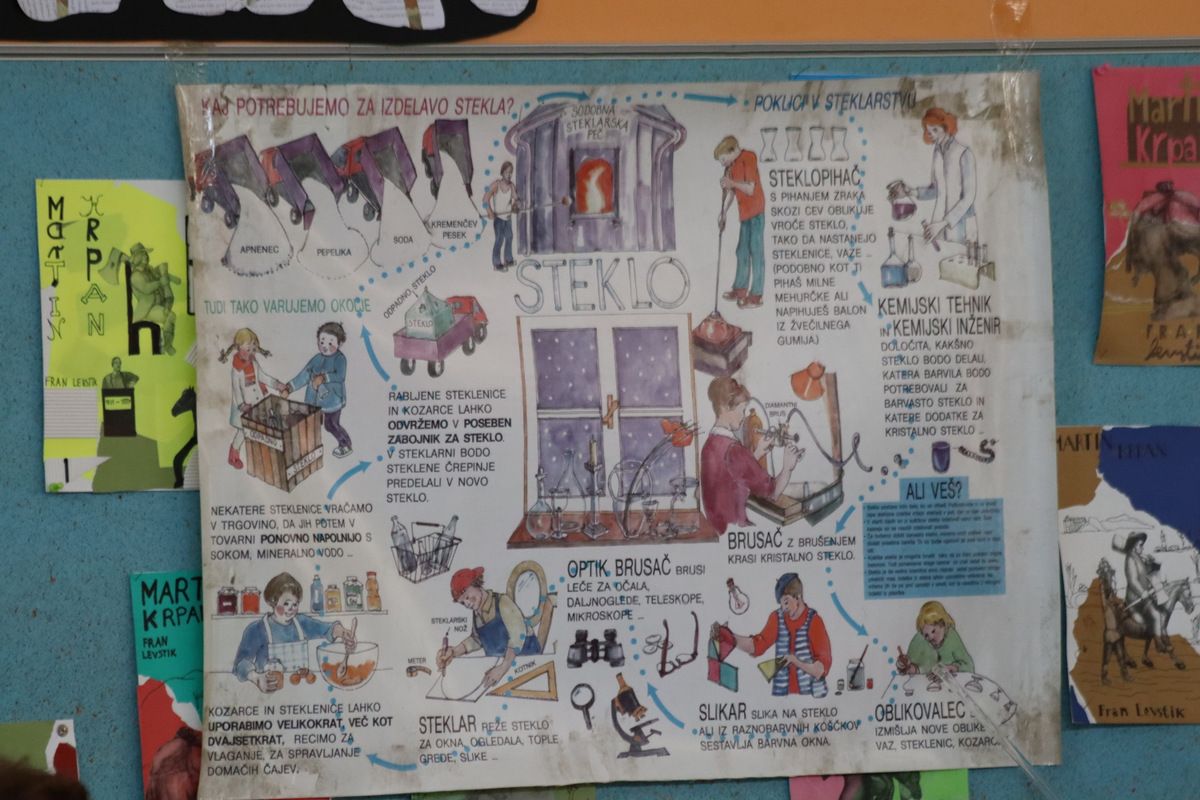 KAJ POTREBUJEMO ZA IZDELAVO STEKLA?
SODOBNA
STEKLARSKA
PEČ
POKLICI V STEKLARSTVU
APNENEC
PEPELIKA
SODA
KREMENČEV
PESEK
STEKLO
STEKLOPIHAČ
S PIHANJEM ZRAKA
SKOZI CEV OBLIKUJE
VROČE STEKLO,
TAKO DA NASTANEJO
STEKLENICE, VAZE ...
(PODOBNO KOT TI
PIHAŠ MILNE
MEHURČKE ALI
NAPIHUJEŠ BALON
IZ ŽVEČILNEGA
GUMIJA)
KEMIJSKI TEHNIK
IN KEMIJSKI INŽENIR
DOLOČITA, KAKŠNO
STEKLO BODO DELALI,
KATERA BARVILA BODO
POTREBOVALI ZA
BARVASTO STEKLO IN
KATERE DODATKE ZA
KRISTALNO STEKLO ...
TUDI TAKO VARUJEMO OKOLJE
ODPADNO STEKLO
STEKLO
ODPADNO
STEKLO
RABLJENE STEKLENICE
IN KOZARCE LAHKO
ODVRŽEMO V POSEBEN
ZABOJNIK ZA STEKLO.
V STEKLARNI BODO
STEKLENE ČREPINJE
PREDELALI V NOVO
STEKLO.
DIAMANTNI
BRUS
NEKATERE STEKLENICE VRAČAMO
V TRGOVINO, DA JIH POTEM V
TOVARNI PONOVNO NAPOLNIJO S
SOKOM, MINERALNO VODO ...
BRUSAČ Z BRUŠENJEM
KRASI KRISTALNO STEKLO.
ALI VEŠ?
OPTIK BRUSAČ BRUSI
LEČE ZA OČALA,
DALJNOGLEDE, TELESKOPE,
MIKROSKOPE ...
STEKLARSKI
NOŽ
METER
KOTNIK
KOZARCE IN STEKLENICE LAHKO
UPORABIMO VELIKOKRAT, VEČ KOT
DVAJSETKRAT, RECIMO ZA
VLAGANJE, ZA SPRAVLJANJE
DOMAČIH ČAJEV.
STEKLAR REŽE STEKLO
ZA OKNA, OGLEDALA, TOPLE
GREDE, SLIKE ...
SLIKAR SLIKA NA STEKLO
ALI IZ RAZNOBARVNIH KOŠČKOV
SESTAVLJA BARVNA OKNA.
OBLIKOVALEC
IZMIŠLJA NOVE OBLIKE
VAZ, STEKLENIC, KOZARC
MARTIN
KRPAN
FRAN LEVSTIK
MART
KRPA
FRAN
LEVSTIK
Mart
Krpa
FRA
MARTIN KRPAN
Fran Levstik